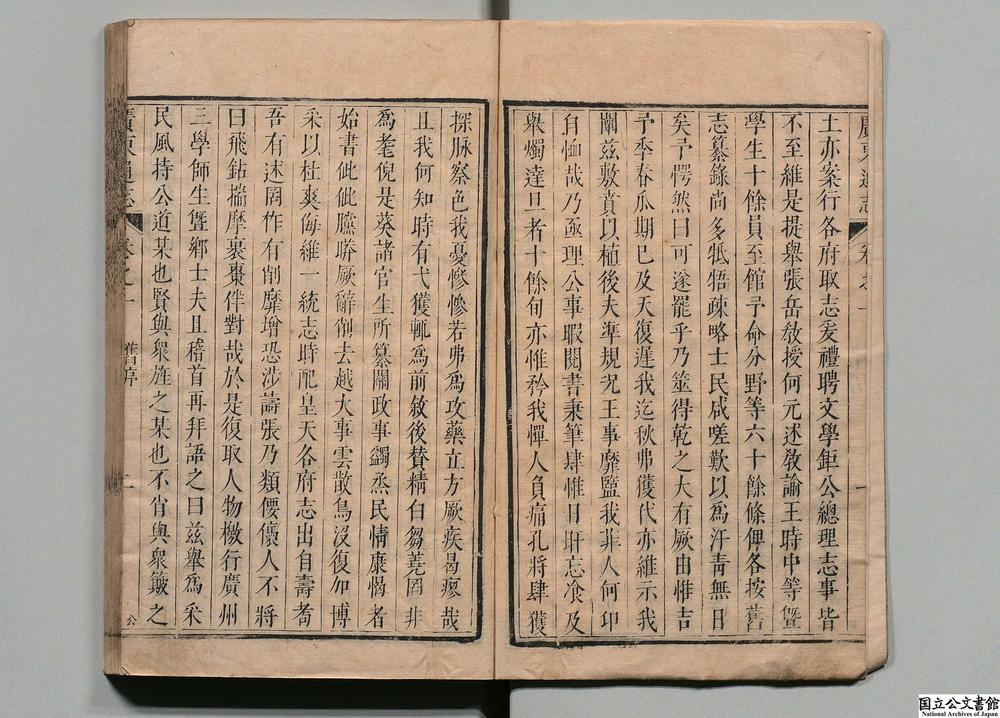 土亦案行各府取志爰禮聘文學鉅公總理志事皆
不至維是提舉張岳敎授何元述敎諭王時中等暨
學生十餘員至館予命分野等六十餘條俾各按舊
志纂錄尚多牴牾疎略士民咸嗟歎以為汗靑無日
矣予愕然曰可遂罷乎乃筮得乾之大有厥由惟吉
予季春瓜期已及天復遲我迄秋弗獲代亦維示我
闡茲敷賁以植後夫準規況王事靡盬我菲人何卬
自恤哉乃亟理公事暇閱書秉筆肆惟日旰忘飡及
舉燭達旦者十餘旬亦惟矜我憚人負痛孔將肆獲
廣東通志
卷之一
舊序
一
探脉察色我憂慘慘若弗為攻藥立方厥疾曷瘳哉
且我何知時有弋獲輒為前敘後賛精白芻蕘罔非
為耄倪是葵諸官生所纂關政事蠲烝民情康惕者
始書仳仳臚勝厥辭削去越大事雲散鳥沒復加博
采以杜爽侮維一統志時配皇天各府志出自壽耈
吾有述罔作有削靡增恐涉譸張乃類偠儴人不將
曰飛鉆揣摩裹棗伴對哉於是復取人物檄行廣州
三學師生暨鄉士夫且稽首再拜語之曰茲舉為采
民風持公道某也賢與衆旌之某也不肖與衆皷之
公
国立公文書館
National Archives of Japan